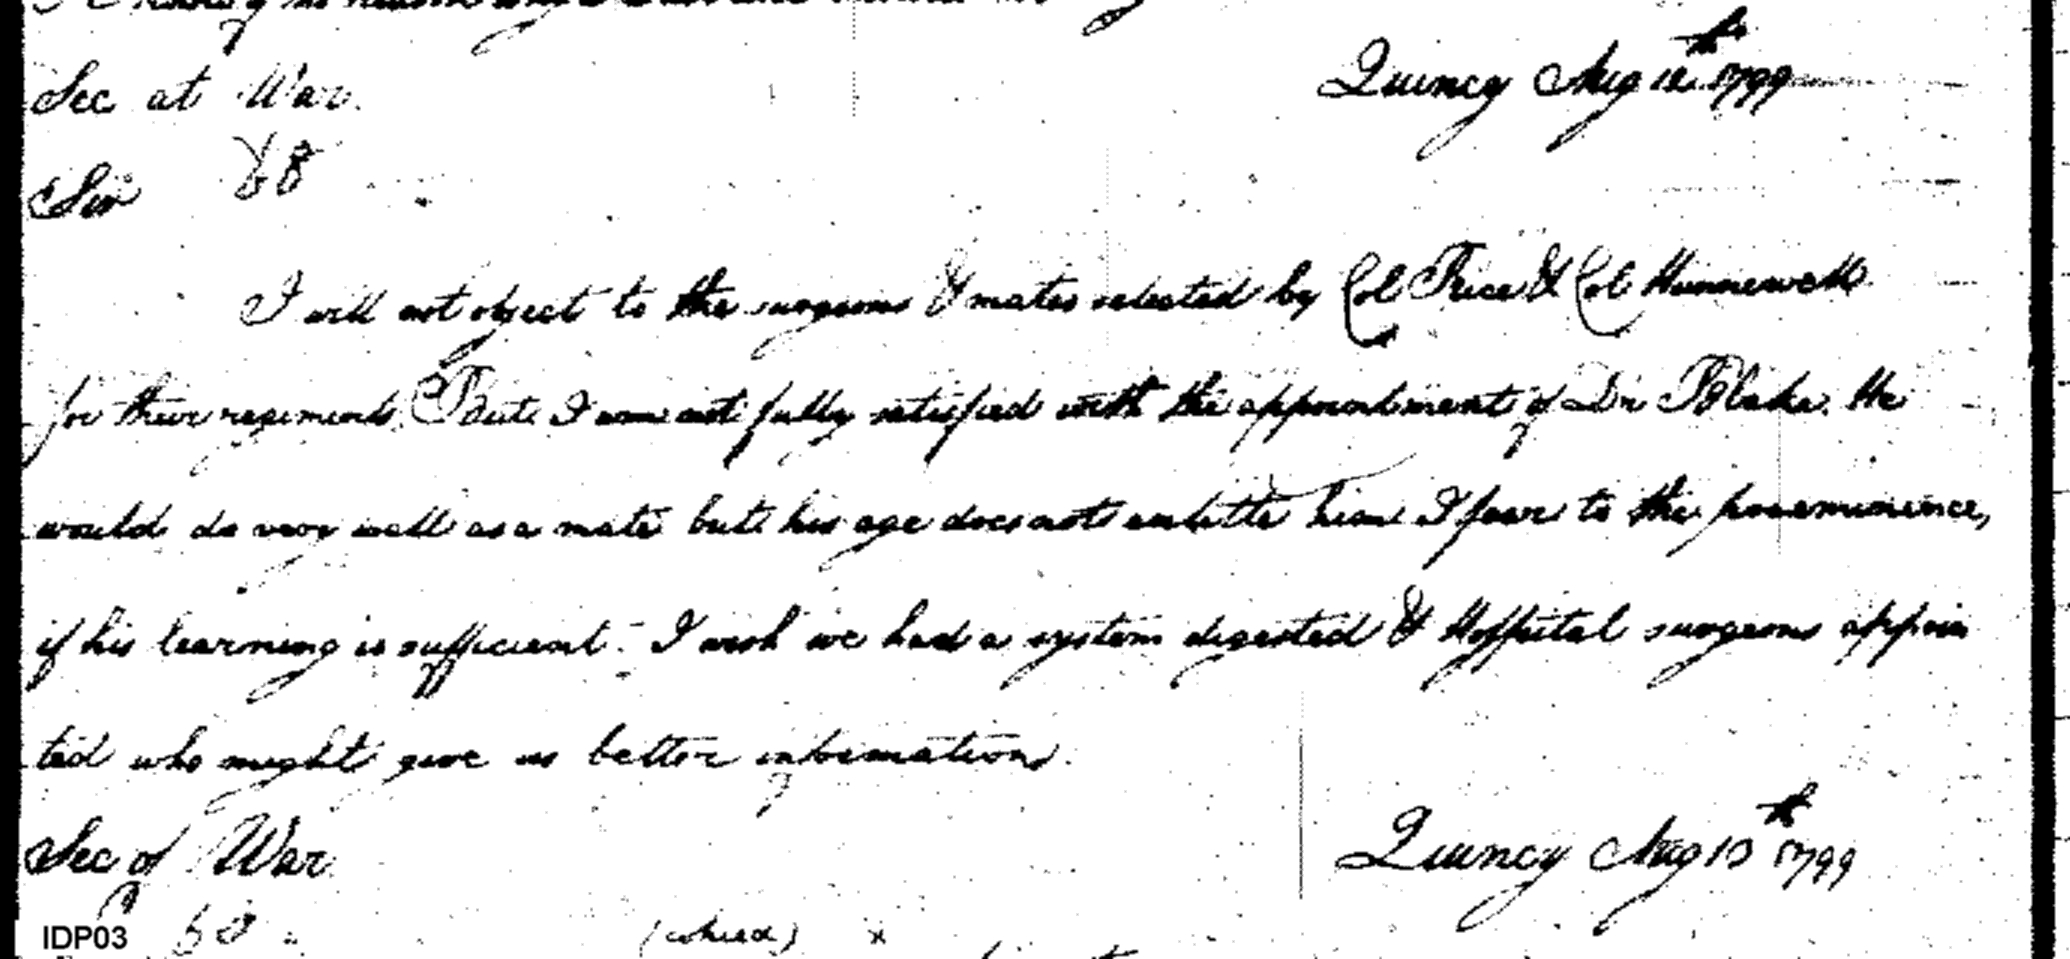 Sec at War.
Quincy Aug 12th 1799
Sir 68
I will not object to the surgeons & mates selected by Col Rice & Col Hunnewell
for their regiments. But I am not fully satisfied with the appointment of Dr Blake. He
would do very well as a mate but his age does not entitle him I fear to the preeminence,
if his learning is sufficient. I wish we had a system digested & Hospital surgeons appoin
ted who might give us better information.
Sec of War
Quincy Aug 13th 1799
(copied) x
IDP03